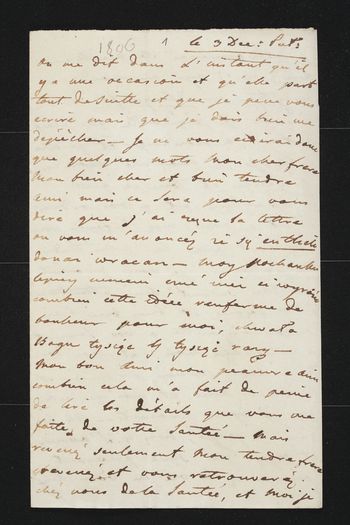 1806 1 le 3 Dec:
on me dit dans L'instant qu'il
y a une occasion et qu'elle part
tout de suitte et que je peux vous
ecrire mais que je dois bien me
depêcher — Je ne vous ecrirai donc
que quelques mots mon cher frere
mon bien cher et bien tendre
ami mais ce sera pour vous
dire que j'ai reçue la lettre
ou vous m'avancéz
wracam — moy
combien cette idée renferme de
bonheur pour moi, chwała
Bogu tysiąc y tysiąc razy —
Mon bon ami mon pauvre ami
combien cela m'a fait de peine
de lire les détails que vous me
faite de votre Santée — Mais
revenéz seulement Mon tendre frere
revenéz et vous retrouveréz
chéz nous de la Santée, et moi je